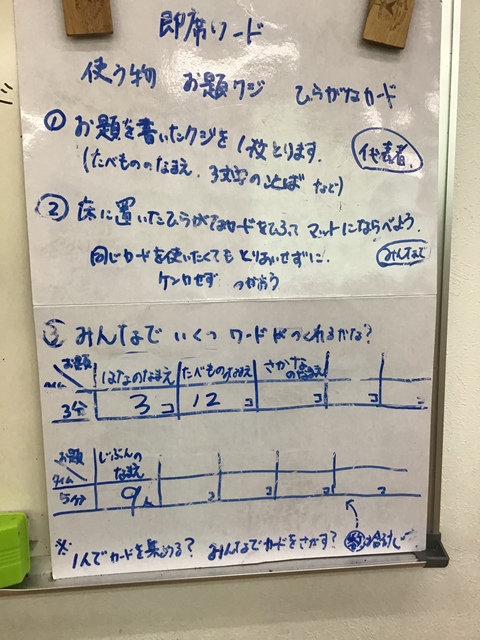 即席ワード
使う物 お題クジ ひらがなカード
① お題を書いたクジを1枚とります。 代表者
(たべもののなまえ、3文字のことば など)
② 床に置いたひらがなカードをひろって マットにならべよう。
同じカードを使いたくても とりあいせずに、 みんなで
ケンカせず つかおう
③ みんなで いくつ ワードがつくれるかな?
お題 はなのなまえ たべもののなまえ さかなのなまえ
タイム
3分 3コ 12 コ コ
お題 じぶんのなまえ
タイム
5分 9人 コ コ コ コ
※ 1人でカードを集める? みんなでカードをさがす?